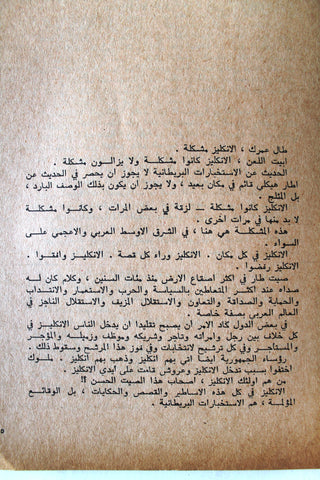 طال عمرك ، الانكليز مشكلة .
ابيت اللعن ، الانكليز كانوا مشكلة ولا يزالون مشكلة .
الحديث عن الاستخبارات البريطانية لا يجوز ان يحصر في الحديث عن
اطار هيكلي قائم في مكان بعيد ، ولا يجوز ان يكون بذلك الوصف البارد ،
بل المثلج .
الانكليز كانوا مشكلة ــ لزقة في بعض المرات ، وكانوا مشكلة
لا بد منها في مرات اخرى .
هذه المشكلة هي هنا ، في الشرق الاوسط العربي والاعجمي على
السواء .
الانكليز في كل مكان . الانكليز وراء كل قصة . الانكليز وافقوا .
الانكليز رفضوا .
صيت طار في اكثر اصقاع الارض منذ مئات السنين ، وكلام كان له
صداه عند اكثر المتعاطين بالسياسة والحرب والاستعمار والانتداب
والحماية والصداقة والتعاون والاستقلال المزيف والاستقلال الناجز في
العالم العربي بصفة خاصة .
في بعض الدول كاد الامر ان يصبح تقليدا ان يدخل الناس الانكليز في
كل خلاف بين رجل وامرأته وتاجر وشريكه وموظف وزميله والمؤجر
والمستأجر وفي كل ترشيح لانتخابات وفي فوز هذا المرشح وسقوط ذلك .
رؤساء الجمهورية ايضا أتى بهم انكليز وذهب بهم انكليز . ملوك
اختفوا بسبب تدخل الانكليز وعروش قامت على ايدي الانكليز .
من هم اولئك الانكليز ، اصحاب هذا الصيت الحسن !!
الانكليز في كل هذه الاساطير والقصص والحكايات ، بل الوقائع
المؤلمة ، هم الاستخبارات البريطانية .
٥